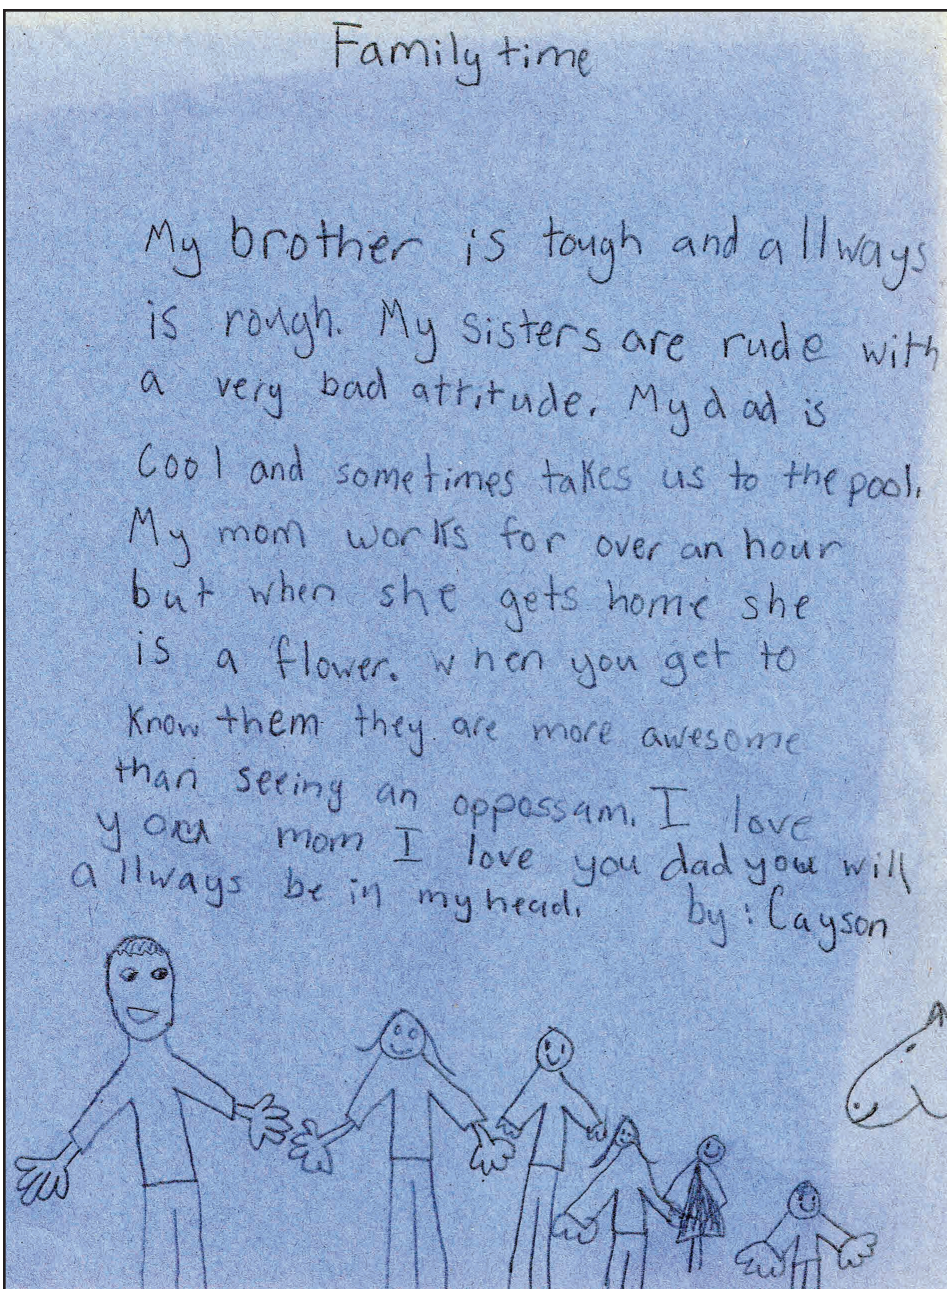 Family time
My brother is tough and allways
is rough. My sisters are rude with
a very bad attitude. My dad is
cool and sometimes takes us to the pool.
My mom works for over an hour
but when she gets home she
is a flower. when you get to
know them they are more awesome
than seeing an oppossam. I love
you mom I love you dad you will
allways be in my head. by: Cayson